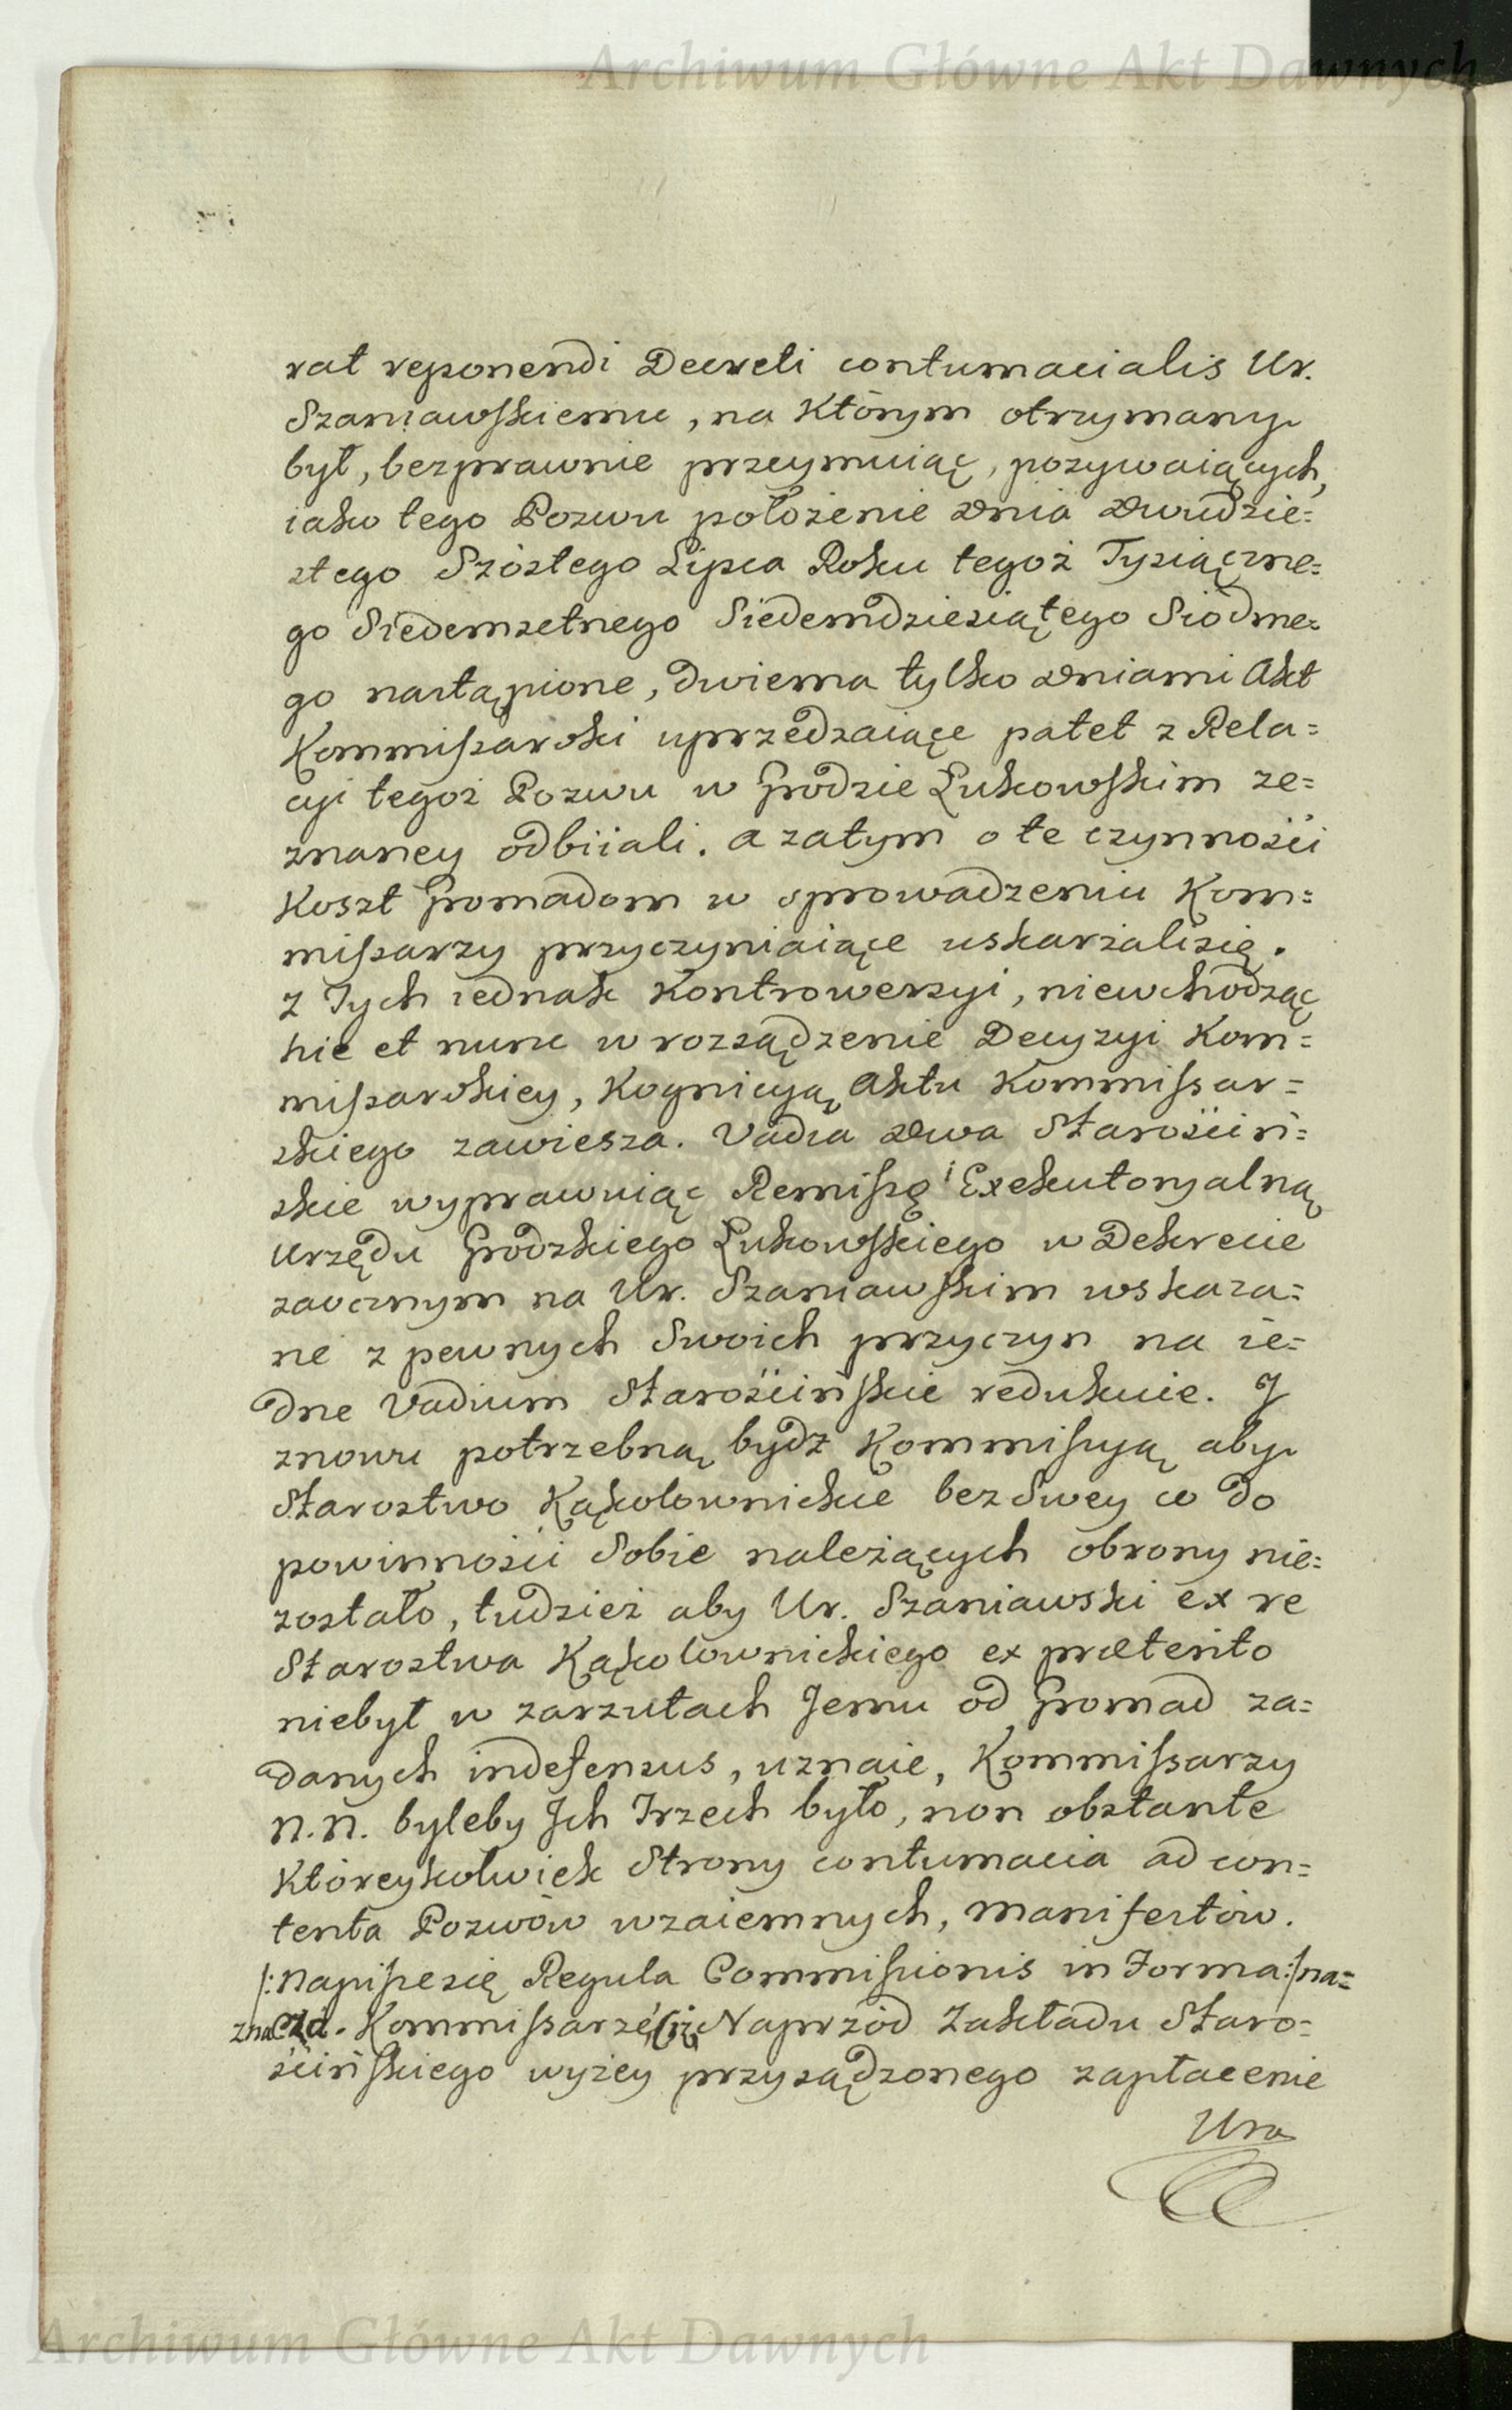 Archiwum Główne Akt Dawnych
rat reponendi Decreti contumacialis Ur.
Szaniawskiemu, na Którym otrzymany
był, bezprawnie przeymuiąc, pozywaiących,
iako tego Pozwu położenie dnia dwudzie=
stego Szóstego Lipca Roku tegoż Tysiączne=
go Siedemsetnego Siedemdziesiątego Siodme=
go nastąpione, dwiema tylko dniami Akt
Kommissarski uprzedzaiące patet z Rela=
cyi tegoż Pozwu w Grodzie Łukowskim ze=
znaney odbiiali. a zatym o te czynności
Koszt Gromadom w sprowadzeniu Kom=
missarzy przyczyniaiące uskarżalisię.
z Tych iednak Kontrowersyi, niewchodząc
hic et nunc w rozsądzenie Decyzyi Kom=
missarskiey, Kognicyą Aktu Kommissar=
skiego zawiesza. Vadia dwa Starościń=
skie wyprawuiąc Remissę i Exekutoryalną
Urzędu Grodzkiego Łukowskiego w Dekrecie
zaocznym na Ur. Szaniawskim wskaza=
ne z pewnych Swoich przyczyn na ie=
dne Vadium Starościńskie redukuie. J
znowu potrzebną bydz Kommissyią aby
Starostwo Kąkolownickie bez Swey co do
powinności Sobie należących obrony nie=
zostało, tudzież aby Ur. Szaniawski ex re
Starostwa Kąkolownickiego ex præterito
niebył w zarzutach Jemu od Gromad za=
danych indefensus, uznaie, Kommissarzy
N.N. byleby Jch Trzech było, non obstante
Któreykolwiek Strony contumacia ad con=
tenta Pozwów wzaiemnych, Manifestów.
/: Napiszesię Regula Commissionis in Forma :/ na=
znacza. Kommissarze iż Naprzód Zakładu Staro=
ścińskiego wyżey przysądzonego zapłacenie
Ura
Archiwum Główne Akt Dawnych